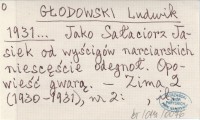 GŁODOWSKI Ludwik
1931... Jako Sałaciorz Ja-
siek od wyścigów narciarskich
niescęście odegnoł. Opo-
wieść gwarą. – Zima 2
(1930-1931), nr 2: